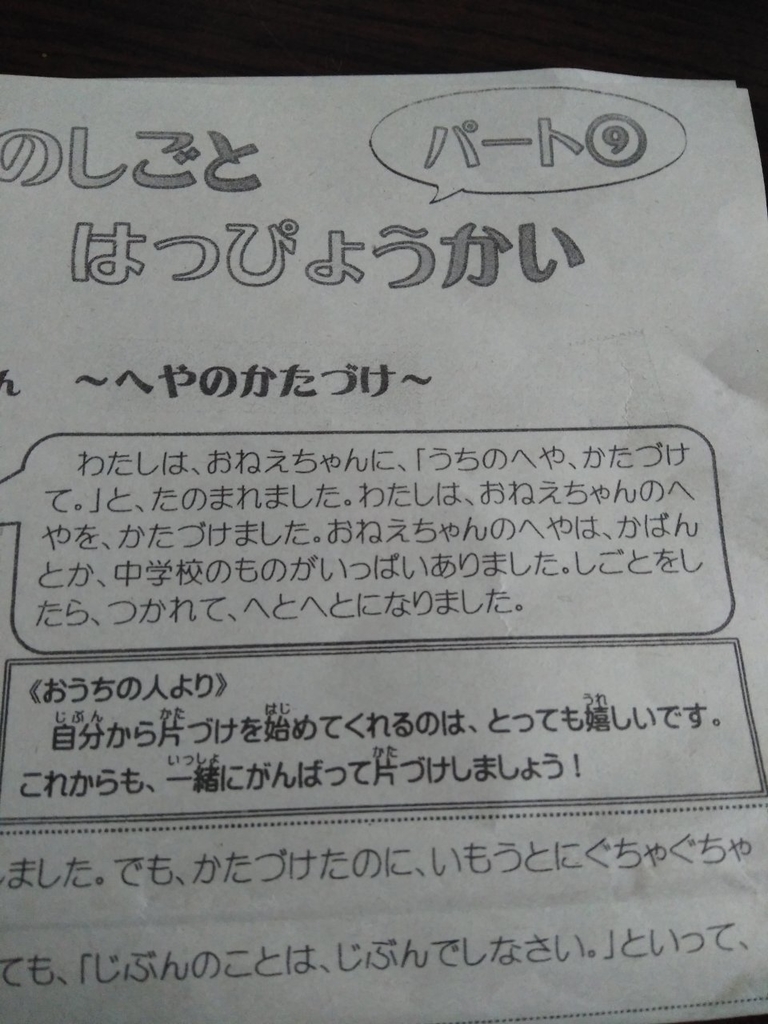 のしごと
パート⑨
はっぴょうかい
ん ～へやのかたづけ～
わたしは、おねえちゃんに、「うちのへや、かたづけ
て。」と、たのまれました。わたしは、おねえちゃんのへ
やを、かたづけました。おねえちゃんのへやは、かばん
とか、中学校のものがいっぱいありました。しごとをし
たら、つかれて、へとへとになりました。
《おうちの人より》
自分から片づけを始めてくれるのは、とっても嬉しいです。
これからも、一緒にがんばって片づけしましょう！
しました。でも、かたづけたのに、いもうとにぐちゃぐちゃ
ても、「じぶんのことは、じぶんでしなさい。」といって、